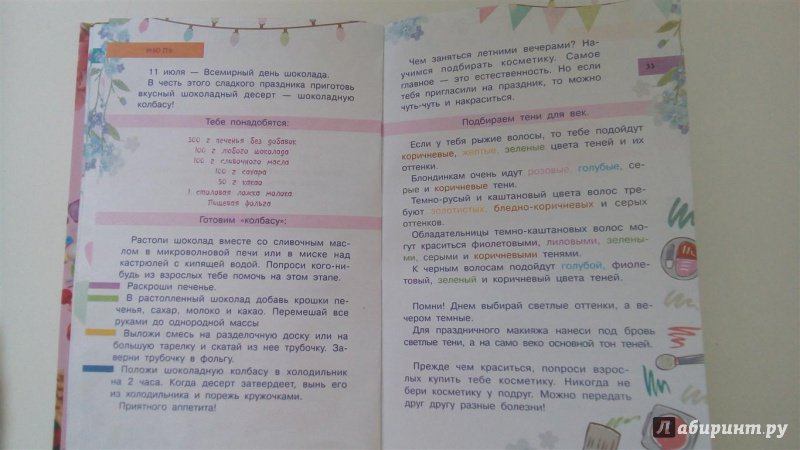 11 июля — Всемирный день шоколада.
В честь этого сладкого праздника приготовь
вкусный шоколадный десерт — шоколадную
колбасу!
Тебе понадобятся:
300 г печенья без добавок
100 г любого шоколада
100 г сливочного масла
100 г сахара
50 г какао
1 столовая ложка молока
Пищевая фольга
Готовим «колбасу»:
Растопи шоколад вместе со сливочным мас-
лом в микроволновой печи или в миске над
кастрюлей с кипящей водой. Попроси кого-ни-
будь из взрослых тебе помочь на этом этапе.
Раскроши печенье.
В растопленный шоколад добавь крошки пе-
ченья, сахар, молоко и какао. Перемешай все
руками до однородной массы
Выложи смесь на разделочную доску или на
большую тарелку и скатай из нее трубочку. За-
верни трубочку в фольгу.
Положи шоколадную колбасу в холодильник
на 2 часа. Когда десерт затвердеет, вынь его
из холодильника и порежь кружочками.
Приятного аппетита!
33
Чем заняться летними вечерами? На-
учимся подбирать косметику. Самое
главное — это естественность. Но если
тебя пригласили на праздник, то можно
чуть-чуть и накраситься.
Подбираем тени для век.
Если у тебя рыжие волосы, то тебе подойдут
коричневые, желтые, зеленые цвета теней и их
оттенки.
Блондинкам очень идут розовые, голубые, се-
рые и коричневые тени.
Темно-русый и каштановый цвета волос тре-
буют золотистых, бледно-коричневых и серых
оттенков.
Обладательницы темно-каштановых волос мо-
гут краситься фиолетовыми, лиловыми, зелены-
ми, серыми и коричневыми тенями.
К черным волосам подойдут голубой, фиоле-
товый, зеленый и коричневый цвета теней.
Помни! Днем выбирай светлые оттенки, а ве-
чером темные.
Для праздничного макияжа нанеси под бровь
светлые тени, а на само веко основной тон теней.
Прежде чем краситься, попроси взрос-
лых купить тебе косметику. Никогда не
бери косметику у подруг. Можно передать
друг другу разные болезни!
Лабиринт.ру